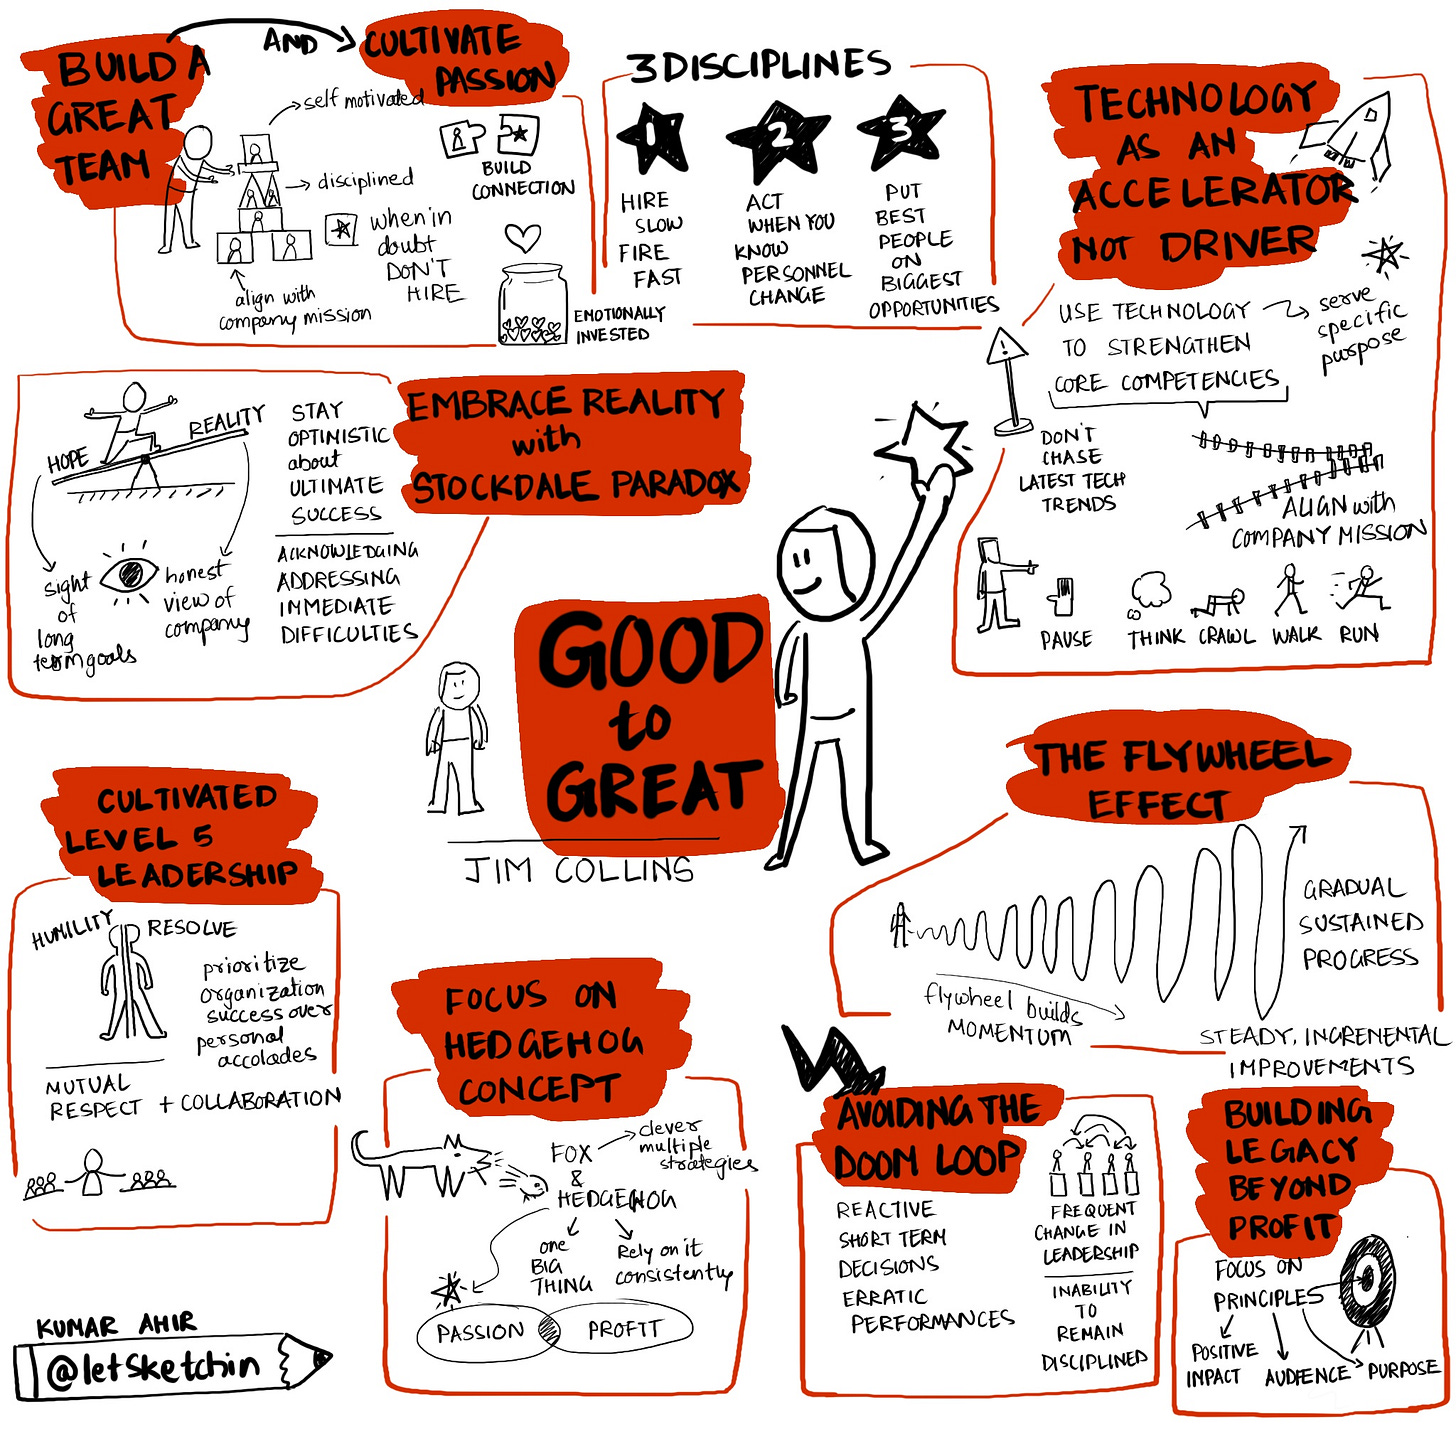 BUILD A
GREAT
TEAM
AND
CULTIVATE
PASSION
self motivated
disciplined
when in
doubt
DON'T
HIRE
align with
company mission
BUILD
CONNECTION
EMOTIONALLY
INVESTED
3 DISCIPLINES
1
HIRE
SLOW
FIRE
FAST
2
ACT
WHEN YOU
KNOW
PERSONNEL
CHANGE
3
PUT
BEST
PEOPLE
ON
BIGGEST
OPPORTUNITIES
TECHNOLOGY
AS AN
ACCELERATOR
NOT DRIVER
USE TECHNOLOGY
TO STRENGTHEN
CORE COMPETENCIES
serve
specific
purpose
!
DON'T
CHASE
LATEST TECH
TRENDS
ALIGN with
COMPANY MISSION
PAUSE
THINK CRAWL WALK RUN
EMBRACE REALITY
with
STOCKDALE PARADOX
HOPE
REALITY
sight
of
long
term goals
honest
view of
company
STAY
OPTINISTIC
about
ULTIMATE
SUCCESS
ACKNOWLEDGING
ADDRESSING
IMMEDIATE
DIFFICULTIES
GOOD
to
GREAT
JIM COLLINS
CULTIVATED
LEVEL 5
LEADERSHIP
HUMILITY
RESOLVE
prioritize
organization
success over
personal
accolades
MUTUAL
RESPECT + COLLABORATION
FOCUS ON
HEDGEHOG
CONCEPT
FOX
&
HEDGEHOG
clever
multiple
strategies
one
BIG
THING
Rely on it
consistently
PASSION
PROFIT
THE FLYWHEEL
EFFECT
flywheel builds
MOMENTUM
GRADUAL
SUSTAINED
PROGRESS
STEADY, INCREMENTAL
IMPROVEMENTS
AVOIDING THE
DOOM LOOP
REACTIVE
SHORT TERM
DECISIONS
ERRATIC
PERFORMANCES
FREQUENT
CHANGE IN
LEADERSHIP
INABILITY
TO
REMAIN
DISCIPLINED
BUILDING
LEGACY
BEYOND
PROFIT
FOCUS ON
PRINCIPLES
POSITIVE
INPACT
AUDIENCE
PURPOSE
KUMAR AHIR
@letsketchin